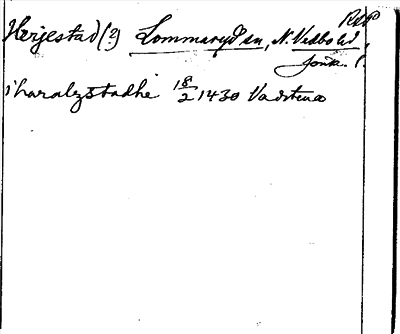 RAP
Herjestad (?) Lommaryd sn, N. Vedbo hd,
Jönk. l.
i haralzstadhe 18/2 1430 Vadstena